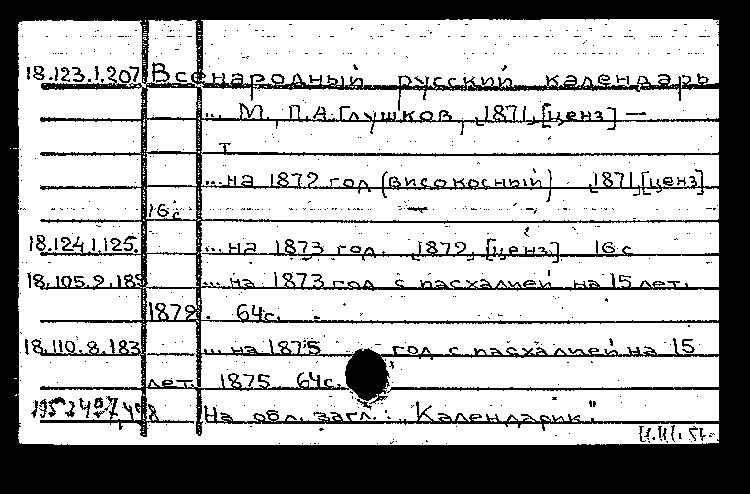 18.123.1.207 Всенародный русский календарь
... М., П.А. Глушков, 1871, [ценз] —
т
... на 1872 год (високосный) 1871, [ценз]
16 с
18.124.1.125. ... на 1873 год. 1872, [ценз] 16 с
18.105.2.185 ... на 1873 год с пасхалией на 15 лет.
1872. 64 с.
18.110.8.183 ... на 1875 год с пасхалией на 15
лет. 1875 64 с.
На обл. загл.: "Календарик."